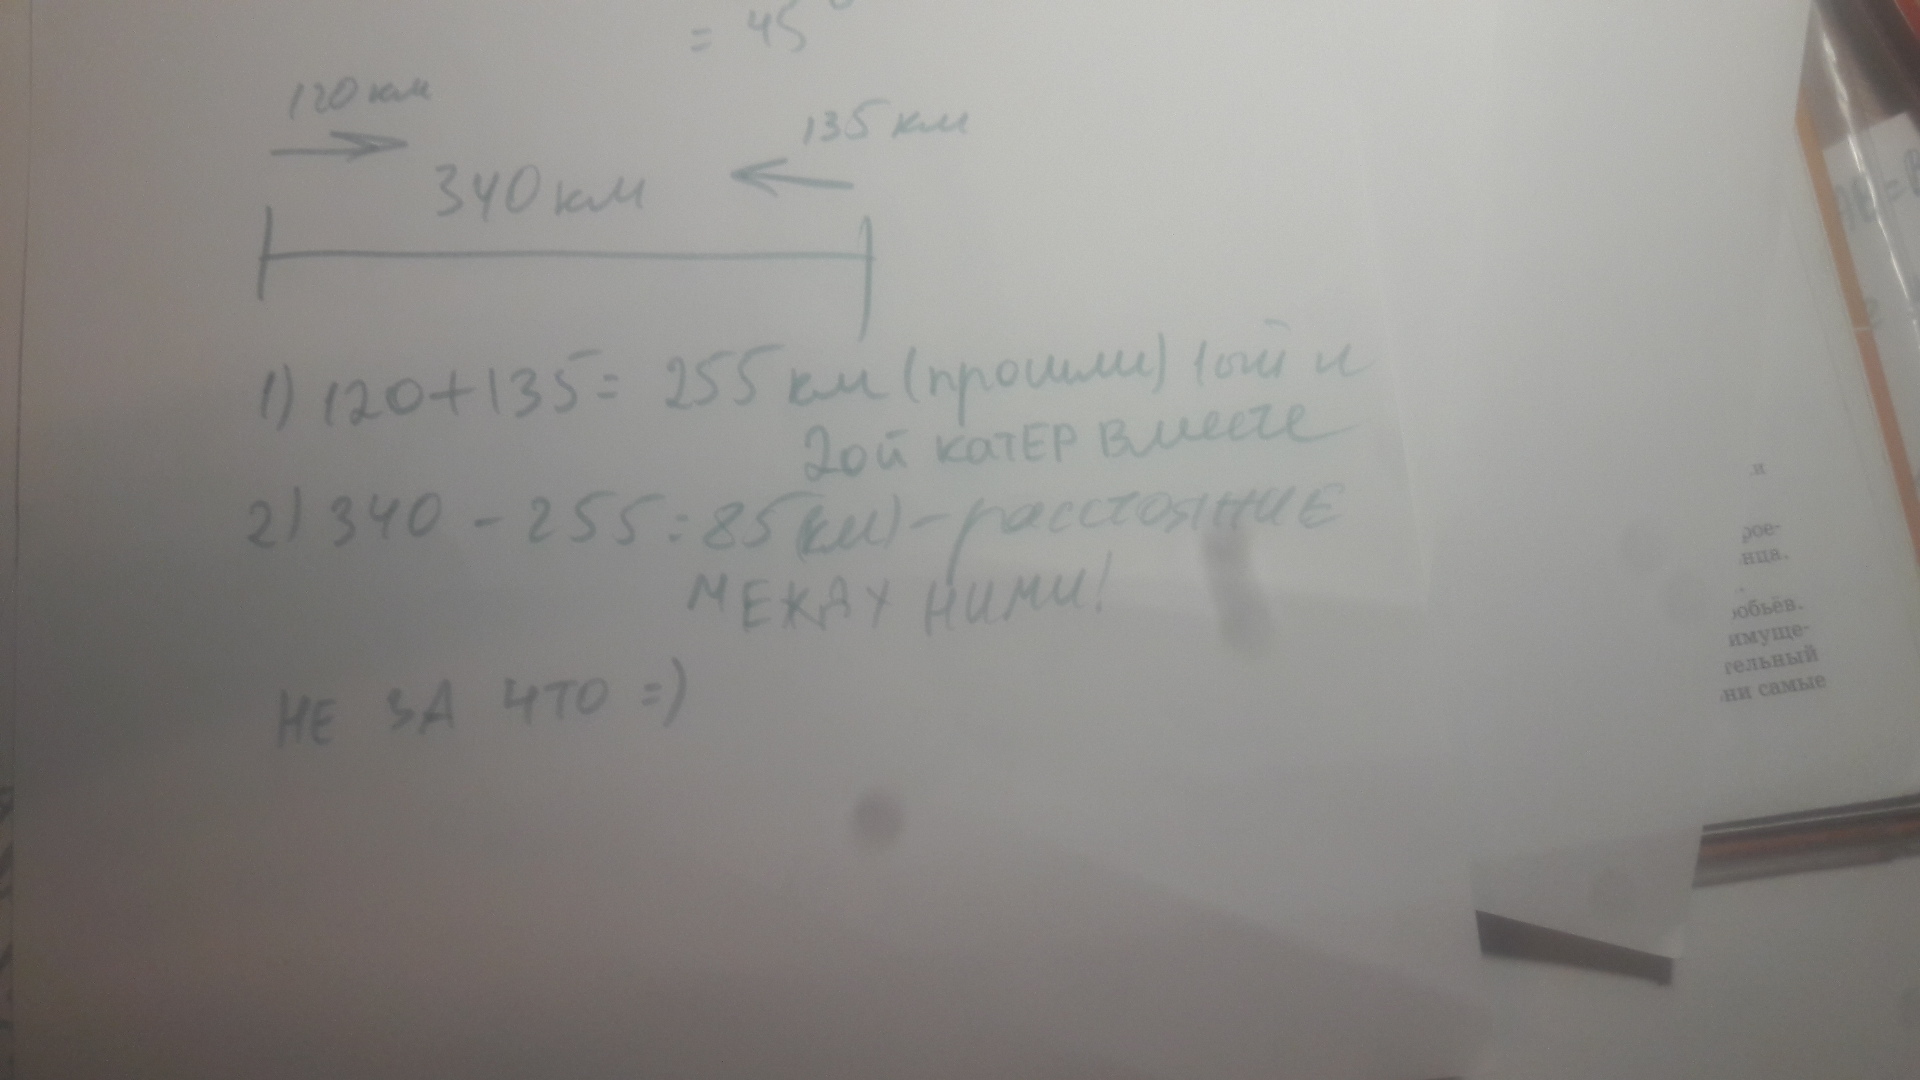 = 45°
120 км
135 км
340 км
1) 120+135= 255 км (прошли) 1ый и
2ой катер вместе
2) 340 - 255 = 85 (км) - расстояние
между ними!
НЕ ЗА ЧТО =)
и
рое-
нца.
юбьёв.
имуще-
тельный
ни самые